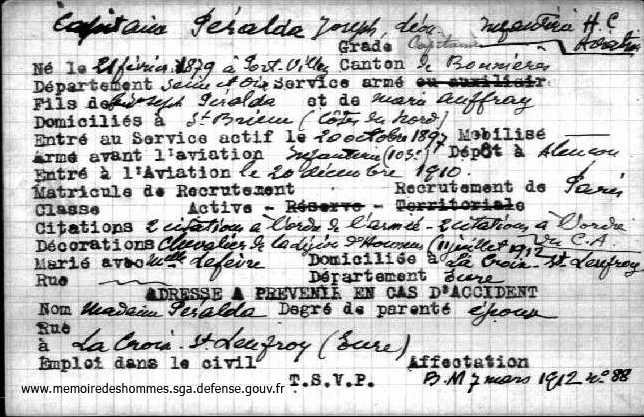 Capitaine Péralda Joseph, Léon Infanterie H.C
Grade Capitaine Aviation
Né le 21 février 1879 à Port-Villez Canton de Bonnières
Département Seine et Oise Service armé ou auxiliair
Fils de Joseph Péralda et de Marie Auffray
Domiciliés à St Brieuc (Côtes du Nord)
Entré au Service actif le 20 octobre 1897 Mobilisé
Armé avant l'aviation Infanterie (103e) Dépôt à Alençon
Entré à l'Aviation le 20 décembre 1910.
Matricule de Recrutement Recrutement de Paris
Classe Active - Réserve - Territoriale
Citations 2 citations à l'ordre de l'armée - 2 citations à l'ordre
du C.A.
Décorations Chevalier de la Légion d'Honneur (11 juillet 1912
Marié avec Mlle Lefèvre Domiciliée à La Croix-St Leufroy
Rue Département Eure
ADRESSE A PREVENIR EN CAS D'ACCIDENT
Nom Madame Péralda Degré de parenté épouse
Rue
à La Croix-St Leufroy (Eure)
Emploi dans le civil Affectation
T.S.V.P. B.M 7 mars 1912 n° 88
www.memoiredeshommes.sga.defense.gouv.fr